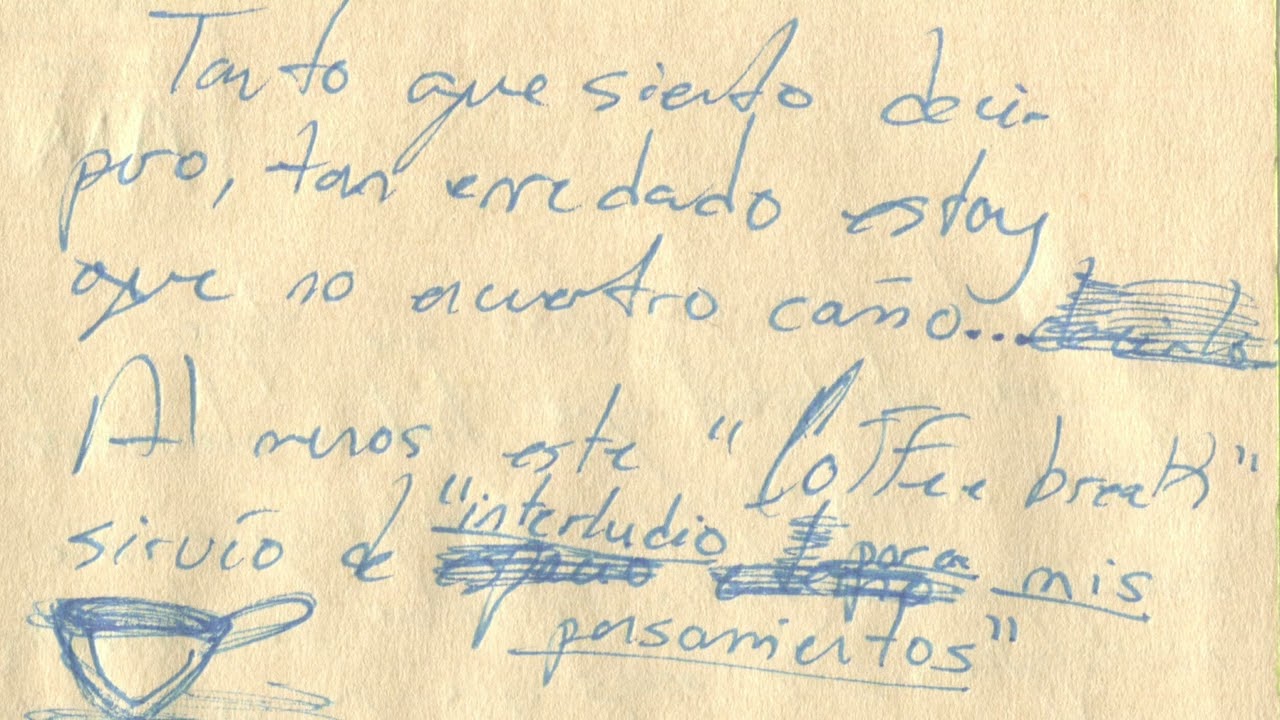 Tanto que siento decir
pero, tan enredado estoy
que no acuatro caño...
Al menos este "Coffee break"
sirvío de "interludio para mis
pensamientos"